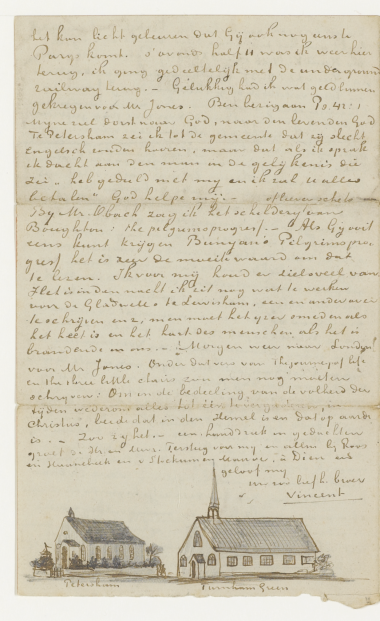 het kon licht gebeuren dat Gij ook nog eens te
Parys komt. s'avonds half 11 was ik weer hier
terug, ik ging gedeeltelijk met de underground
railway terug. – Gelukkig had ik wat geld binnen
gekregen voor Mr Jones. Ben bezig aan Ps 42:1
Mijne ziel dorst naar God, naar den levenden God
Te Petersham zei ik tot de gemeente dat zij slecht
Engelsch zouden hooren, maar dat als ik sprak
ik dacht aan den man in de gelijkenis die
zei „heb geduld met my en ik zal U alles
betalen" God helpe mij. –
By Mr. Obach zag ik het schildery van
Boughton: the pilgrimsprogress. – Als Gy ooit
eens kunt krijgen Bunyans Pilgrimspro-
gress het is zeer de moeite waard om dat
te lezen. Ik voor mij houd er zielsveel van
Het is in den nacht ik zit nog wat te werken
voor de Gladwells te Lewisham, een en ander over
te schrijven enz, men moet het yzer smeden als
het heet is en het hart des menschen als het is
brandende in ons. – Morgen weer naar London
voor Mr Jones. Onder dat vers van The journey of life
en the three little chairs zou men nog moeten
schrijven: Om in de bedeeling van de volheid der
tijden wederom alles tot een te vergaderen in
Christus, beide dat in den Hemel is en dat op aarde
is. – Zoo zy het. – een handdruk in gedachten
groet de Hr. en Mevr. Tersteeg voor my en allen by Roos
en Haanebeek en v Stockum en Mauve, à Dieu
geloof my
uw zo liefh. broer
Vincent
Petersham
Turnham Green